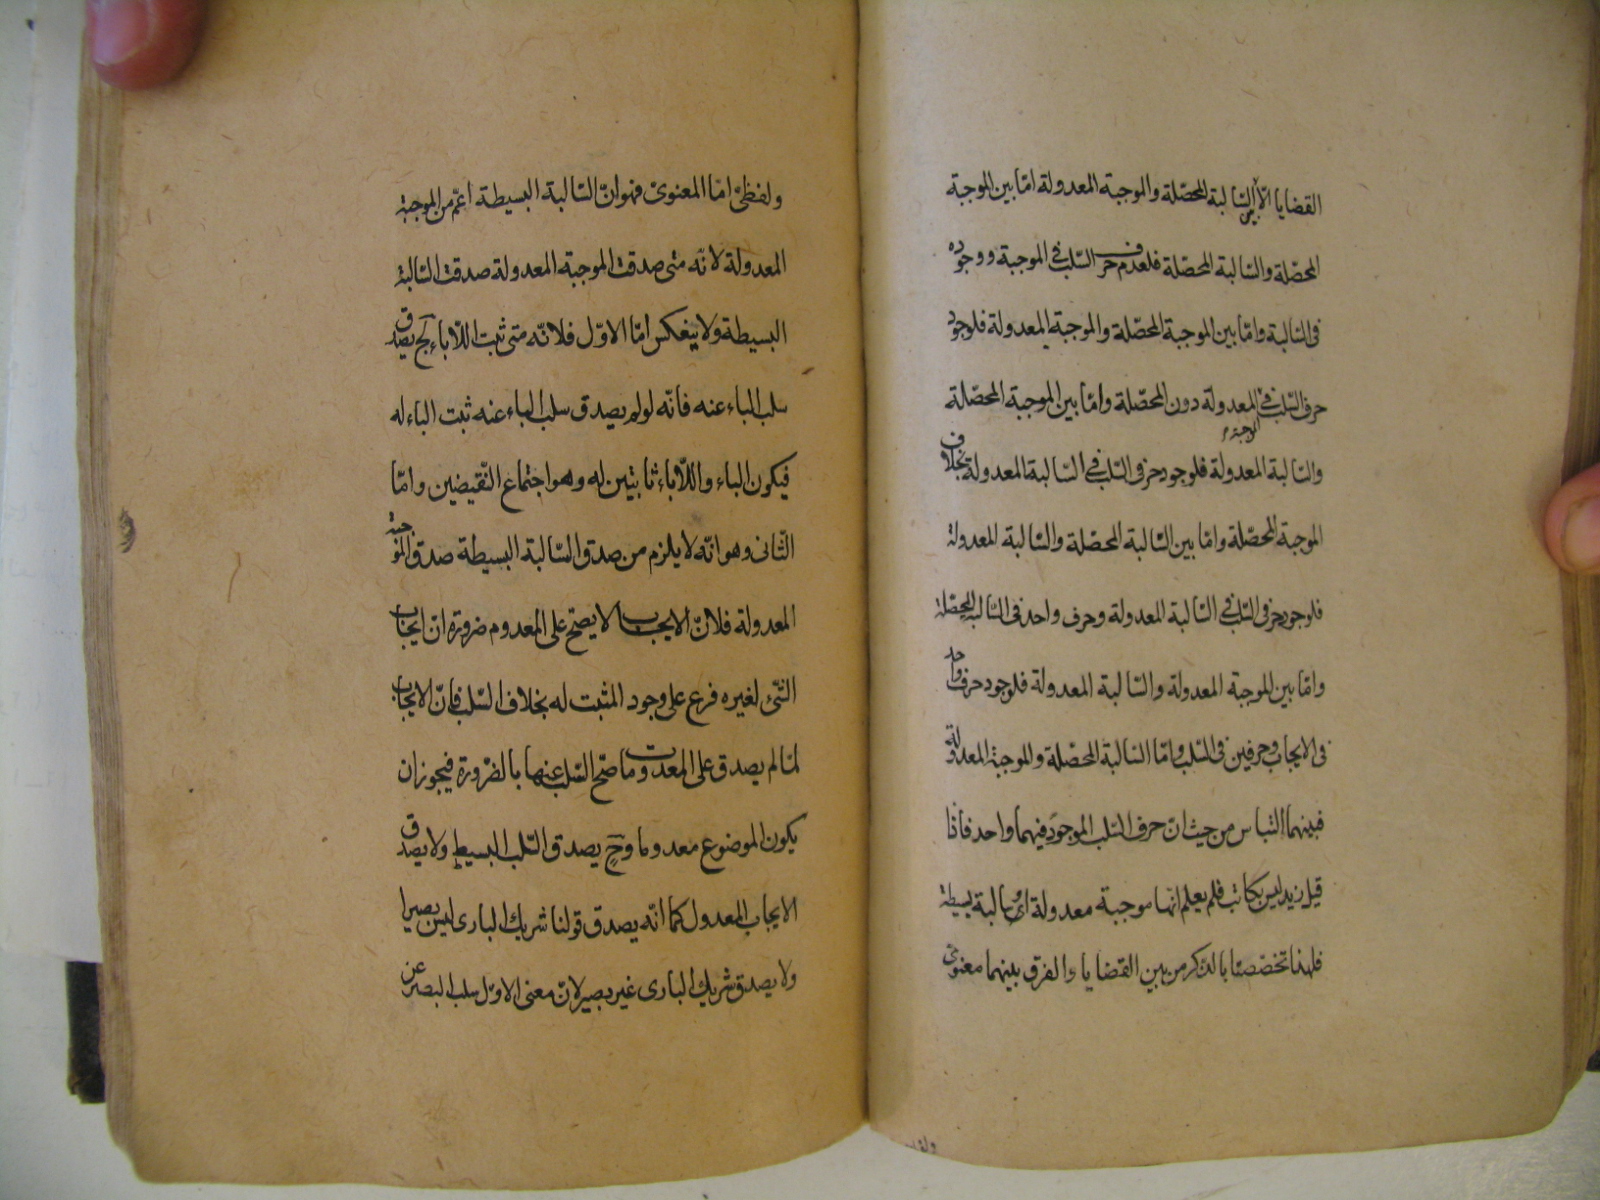 القضايا الا بين السالبة المحصّلة والموجبة المعدولة امّا بين الموجبة
المحصّلة والسّالبة المحصّلة فلعدم حرف السّلب فى الموجبة ووجوده
فى السّالبة وامّا بين الموجبة المحصّلة والموجبة المعدولة فلوجود
حرف السّلب فى المعدولة دون المحصّلة وامّا بين الموجبة المحصّلة
والسّالبة المعدولة فلوجود حرفى السّلب فى السّالبة المعدولة بخلاف
الموجبة
الموجبة المحصّلة وامّا بين السّالبة المحصّلة والسّالبة المعدولة
فلوجود حرفى السّلب فى السّالبة المعدولة وحرف واحد فى السّالبة المحصّلة
وامّا بين الموجبة المعدولة والسّالبة المعدولة فلوجود حرف واحد
فى الايجاب وحرفين فى السّلب وامّا السّالبة المحصّلة والموجبة المعدولة
فبينهما التباس من حيث انّ حرف السّلب الموجود فيهما واحد فاذا
قيل زيد ليس بكاتب فلم يعلم انّها موجبة معدولة او سالبة بسيطة
فلهذا تخصّصتا بالذكر من بين القضايا والفرق بينهما معنوىّ
ولفظىّ امّا المعنوىّ فهو انّ السّالبة البسيطة اعمّ من الموجبة
المعدولة لانّه متى صدقت الموجبة المعدولة صدقت السّالبة
البسيطة ولا ينعكس امّا الاوّل فلانّه متى ثبت اللّاباء لج يصدق
سلب الباء عنه فانّه لو لم يصدق سلب الباء عنه ثبت الباء له
فيكون الباء واللّاباء ثابتين له وهو اجتماع النّقيضين وامّا
الثّانى وهو انّه لا يلزم من صدق السّالبة البسيطة صدق الموجبة
المعدولة فلانّ الايجاب لا يصحّ على المعدوم ضرورة انّ ايجاب
الشّىء لغيره فرع على وجود المثبت له بخلاف السّلب فانّ الايجاب
لمّا لم يصدق على المعدومات صحّ السّلب عنها بالضّرورة فيجوز ان
يكون الموضوع معدوما وحٍ يصدق السّلب البسيط ولا يصدق
الايجاب المعدول كما انّه يصدق قولنا شريك البارى ليس بصيرا
ولا يصدق شريك البارى غير بصير لانّ معنى الاوّل سلب البصر عن